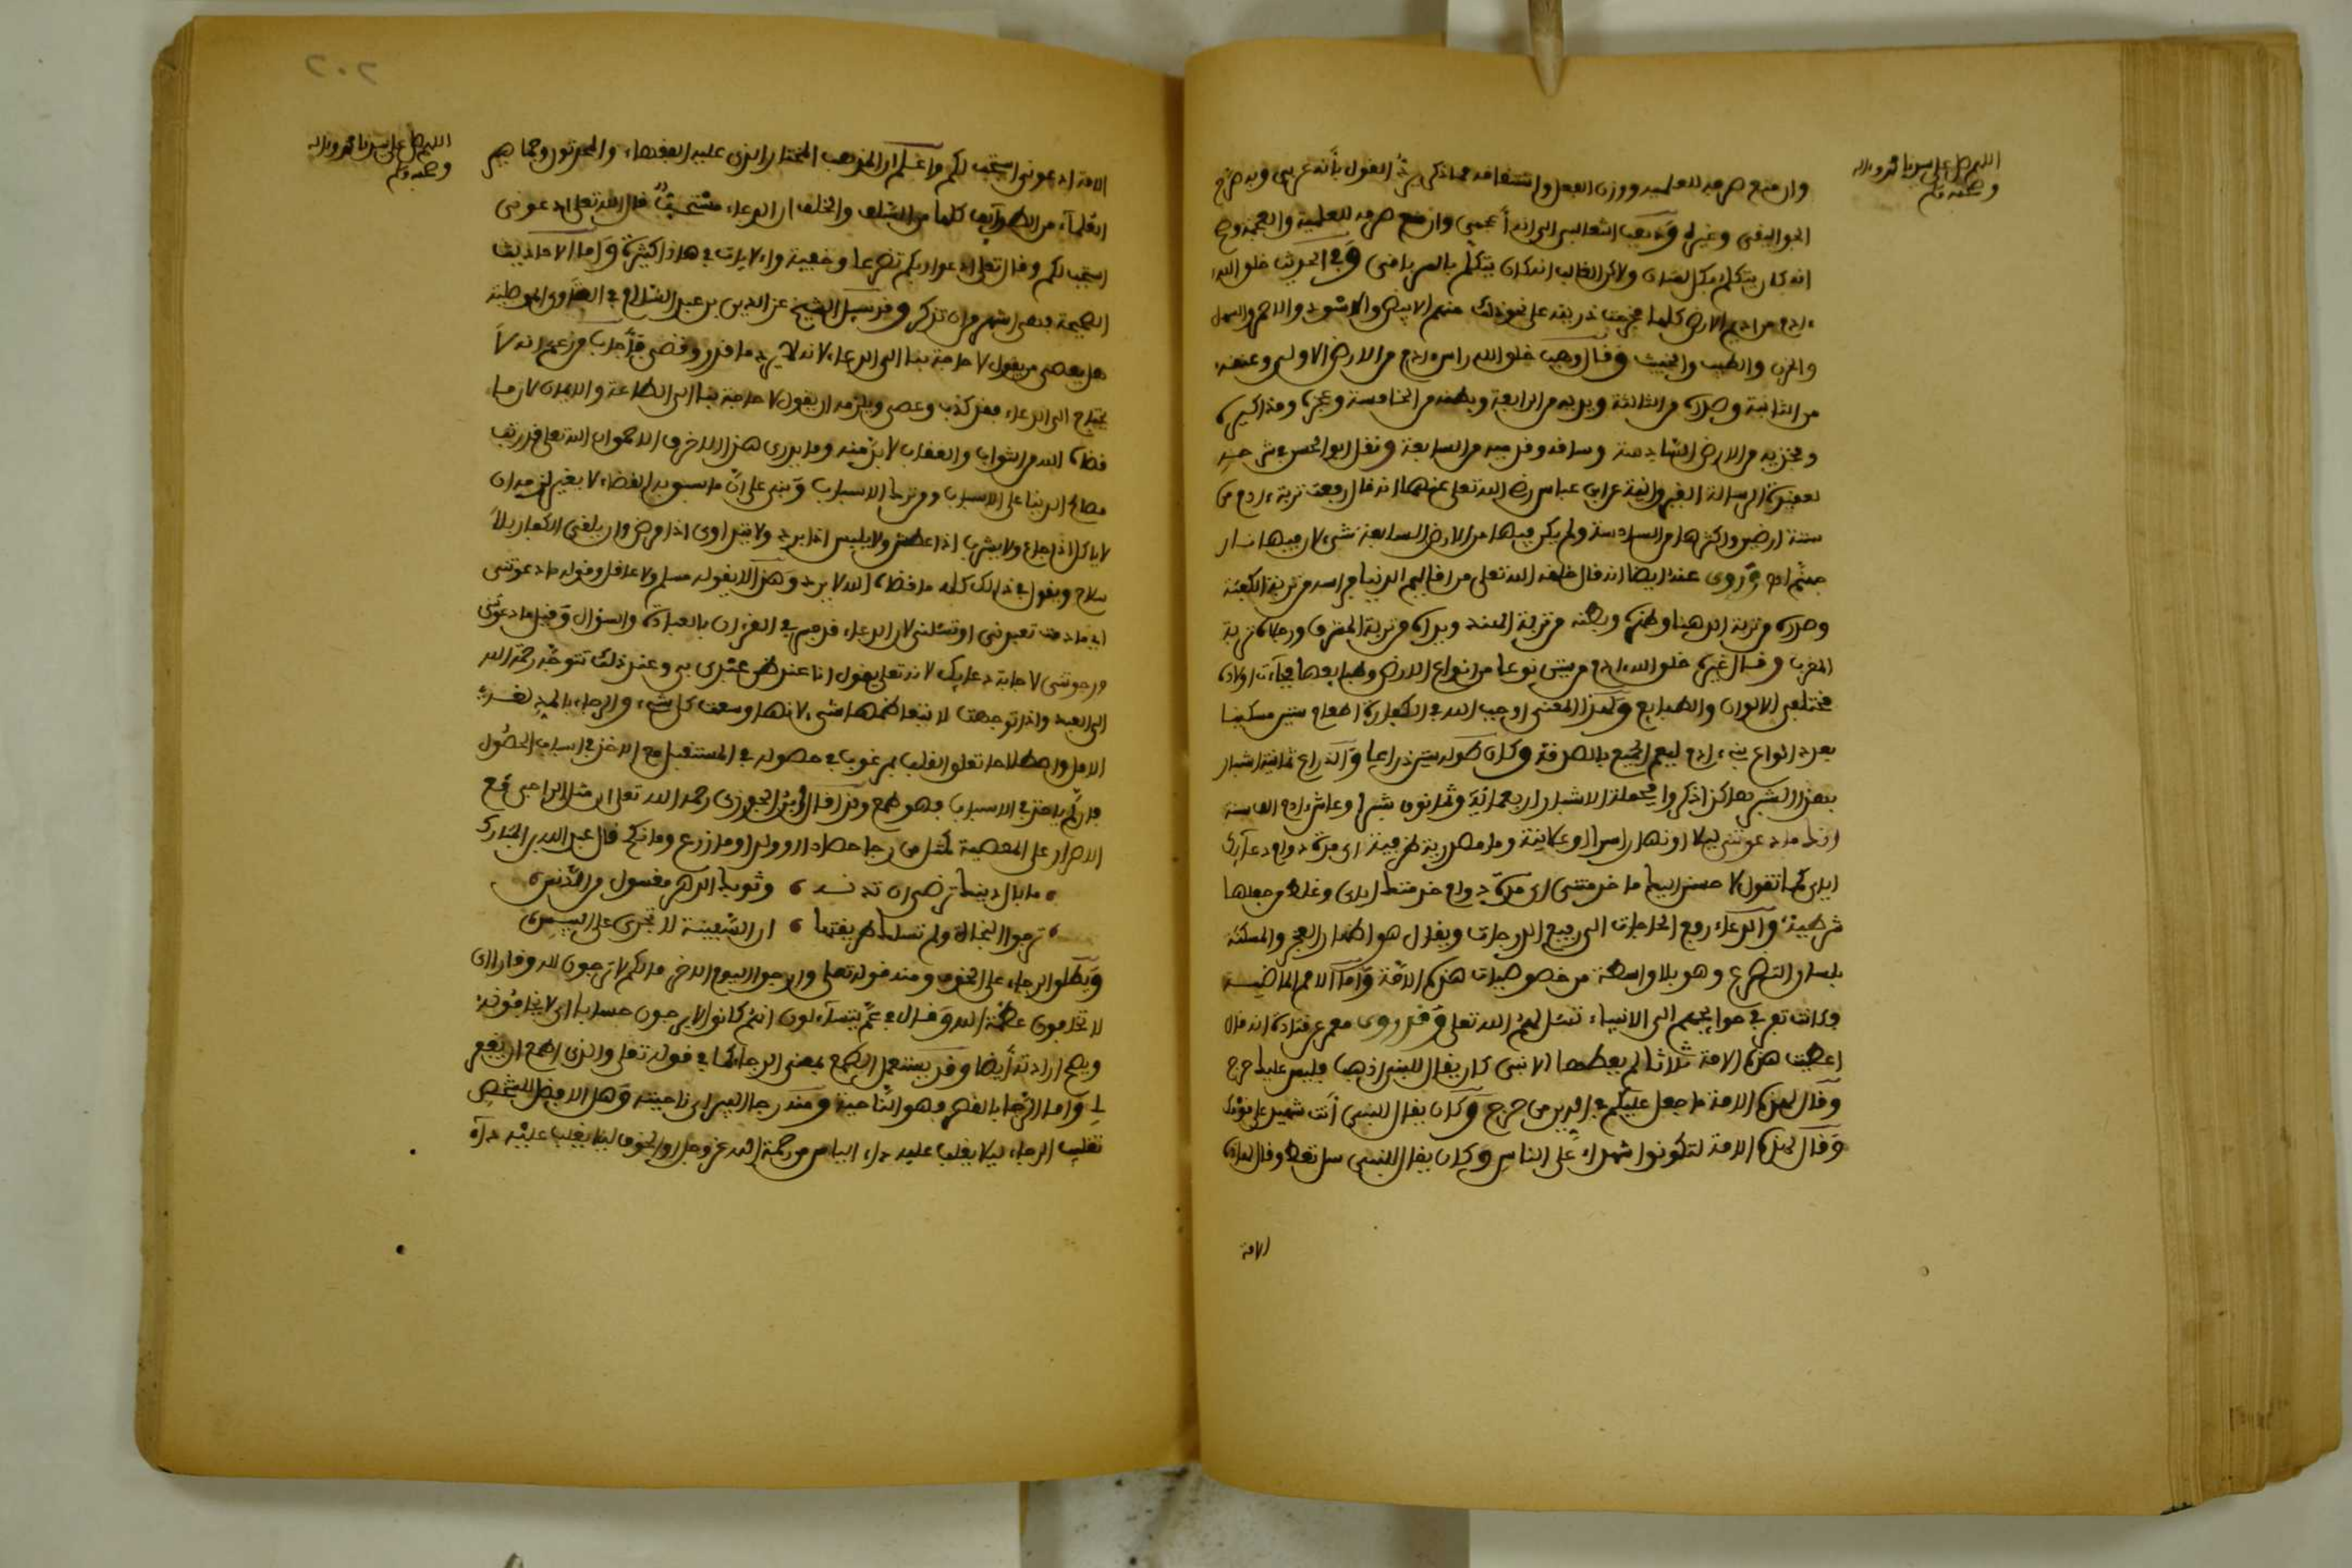 اللهم صل على سيدنا محمد وءاله
وصحبه وسلم
وان منع صرفه للعلمية ووزن الفعل واشتقاقه مما ذكر القول بأنه عربي وبه صرح
الجواليقي وغيره وذهب الثعالبي الى انه أعجمي وان منع صرفه للعلمية والعجمة وصح
انه كان يتكلم بكل لسان ولاكن الغالب انه كان يتكلم بالسريانى وفي الحديث خلق الله
ءادم من اديم الارض كلها فخرجت ذريته على نحو ذلك منهم الابيض والاسود والاحمر والسهل
والحزن والطيب والخبيث وقال وهب خلق الله راس ءادم من الارض الاولى وعنقه
من الثانية وصدره من الثالثة ويديه من الرابعة وبطنه من الخامسة وعجزه ومذاكيره
وفخذيه من الارض السادسة وساقه وقدميه من السابعة ونقل ابو الحسن في شرحه
لعقيدة الرسالة القيروانية عن ابن عباس رضى الله تعلى عنهما انه قال رفعت تربة ءادم من
ستة ارضين واكثرها من السادسة ولم يكن فيها من الارض السابعة شيء لان فيها نار
جهنم اه وروى عنه ايضا انه قال خلقه الله تعلى من اقاليم الدنيا فراسه من تربة الكعبة
وصدره من تربة الدهنا وظهره وبطنه من تربة الهند ويداه من تربة المشرق ورجلاه من تربة
المغرب وقال غيره خلق الله ءادم من ستين نوعا من انواع الارض وطبايعها فجاءت اولاده
مختلفي الالوان والطبايع ولهذا المعنى اوجب الله في الكفارة اطعام ستين مسكينا
بعدد انواع بني ءادم ليعم الجميع بالصدقة وكان طوله ستين ذراعا والذراع ثمانية اشبار
بهذا الشبر هاكذا ذكروا فجملة الاشبار اربعمائة وثمانون شبرا وعاش ءادم الف سنة
ما دعوتنى ليلا او نهارا سرا او علانية وما مصدرية ظرفية اى مدة دوام دعائك
اياى كما تقول لا احسن اليك ما خدمتنى اى مدة دوام خدمتك اياى وغلط من جعلها
شرطية والدعاء رفع الحاجات الى رفيع الدرجات ويقال هو اظهار العجز والمسكنة
بلسان التضرع وهو بلا واسطة من خصوصيات هذه الامة وأما الامم الماضية
فكانت تفزع في حوايجهم الى الانبياء تسئل لهم الله تعلى وقد روى معمر عن قتادة انه قال
اعطيت هذه الامة ثلاثا لم يعطها الا نبى كان يقال للنبى اذهب فليس عليك حرج
وقال لهذه الامة ما جعل عليكم في الدين من حرج وكان يقال للنبى أنت شهيد على قومك
وقال لهذه الامة لتكونوا شهداء على الناس وكان يقال للنبى سل تعط وقال لهذه
الامة
٢٠٢
اللهم صل على سيدنا محمد وءاله
وصحبه وسلم
الامة ادعونى استجب لكم واعلم ان المذهب المختار الذى عليه الفقهاء والمحدثون وجماهير
العلماء من الطوايف كلها من السلف والخلف ان الدعاء مستحب قال الله تعلى ادعونى
استجب لكم وقال تعلى ادعوا ربكم تضرعا وخفية والايات في هاذا كثيرة وأما الاحاديث
الصحيحة فهى اشهر من ان تذكر وقد سيل الشيخ عز الدين بن عبد السلام في الفتاوى الموصلية
هل يعصى من يقول لا حاجة بنا الى الدعاء لانه لا يرد ما قدر وقضى فأجاب من زعم انه لا
يحتاج الى الدعاء فقد كذب وعصى ويلزمه ان يقول لا حاجة بنا الى الطاعة والايمان لان ما
قضاه الله من الثواب والعقاب لا بد منه وما يدرى هذا الاخرق الاحمق ان الله تعلى قد رتب
مصالح الدنيا على الاسباب ومن ترك الاسباب وبنى على أن ما سبق به القضاء لا يغير لزمه ان
لا ياكل اذا جاع ولا يشرب اذا عطش ولا يلبس اذا برد ولا يتداوى اذا مرض وان يلقى الكفار بلا
سلاح ويقول في ذالك كله ما قضاه الله لا يرد وهذا لا يقوله مسلم ولا عاقل وقوله ما دعوتنى
اى ما دمت تعبدنى او تسئلنى لان الدعاء فرسم في القرءان بالعبادة والسؤال وقيل ما دعوتنى
ورجوتنى لاجابة دعايك لانه تعلى يقول انا عند ظن عبدى بي وعند ذلك تتوجه رحمة الله
الى العبد واذا توجهت لا يتعاظمها شيء لانها وسعت كل شيء والرجاء بالمد لغة
الامل واصطلاحا تعلق القلب بمرغوب في حصوله في المستقبل مع الاخذ في اسباب الحصول
فان لم ياخذ في الاسباب فهو طمع ولذا قال ابن الجوزى رحمه الله تعلى ان مثل الراجى مع
الاصرار على المعصية كمثل من رجا حصادا او ولدا وما زرع وما نكح قال عبد الله بن المبارك
ما بال دينك ترضى ان تدنسه وثوبك الدهر مغسول من الدنس
ترجوا النجاة ولم تسلك طريقتها ان السفينة لا تجرى على اليبس
ويطلق الرجاء على الخوف ومنه قوله تعلى وارجوا اليوم الاخر ما لكم لا ترجون لله وقارا اى
لا تخافون عظمة الله وقال في عم يتساءلون انهم كانوا لا يرجون حسابا اى لا يخافونه
ويصح ارادته أيضا وقد يستعمل الطمع بمعنى الرجاء كما في قوله تعلى والذى اطمع ان يغفر
لى واما الرجا بالقصر فهو الناحية ومنه رجا البير اى ناحيته وهل الافضل للشخص
تغليب الرجاء ليلا يغلب عليه داء الياس من رحمة الله عز وجل او الخوف ليلا يغلب عليه داء